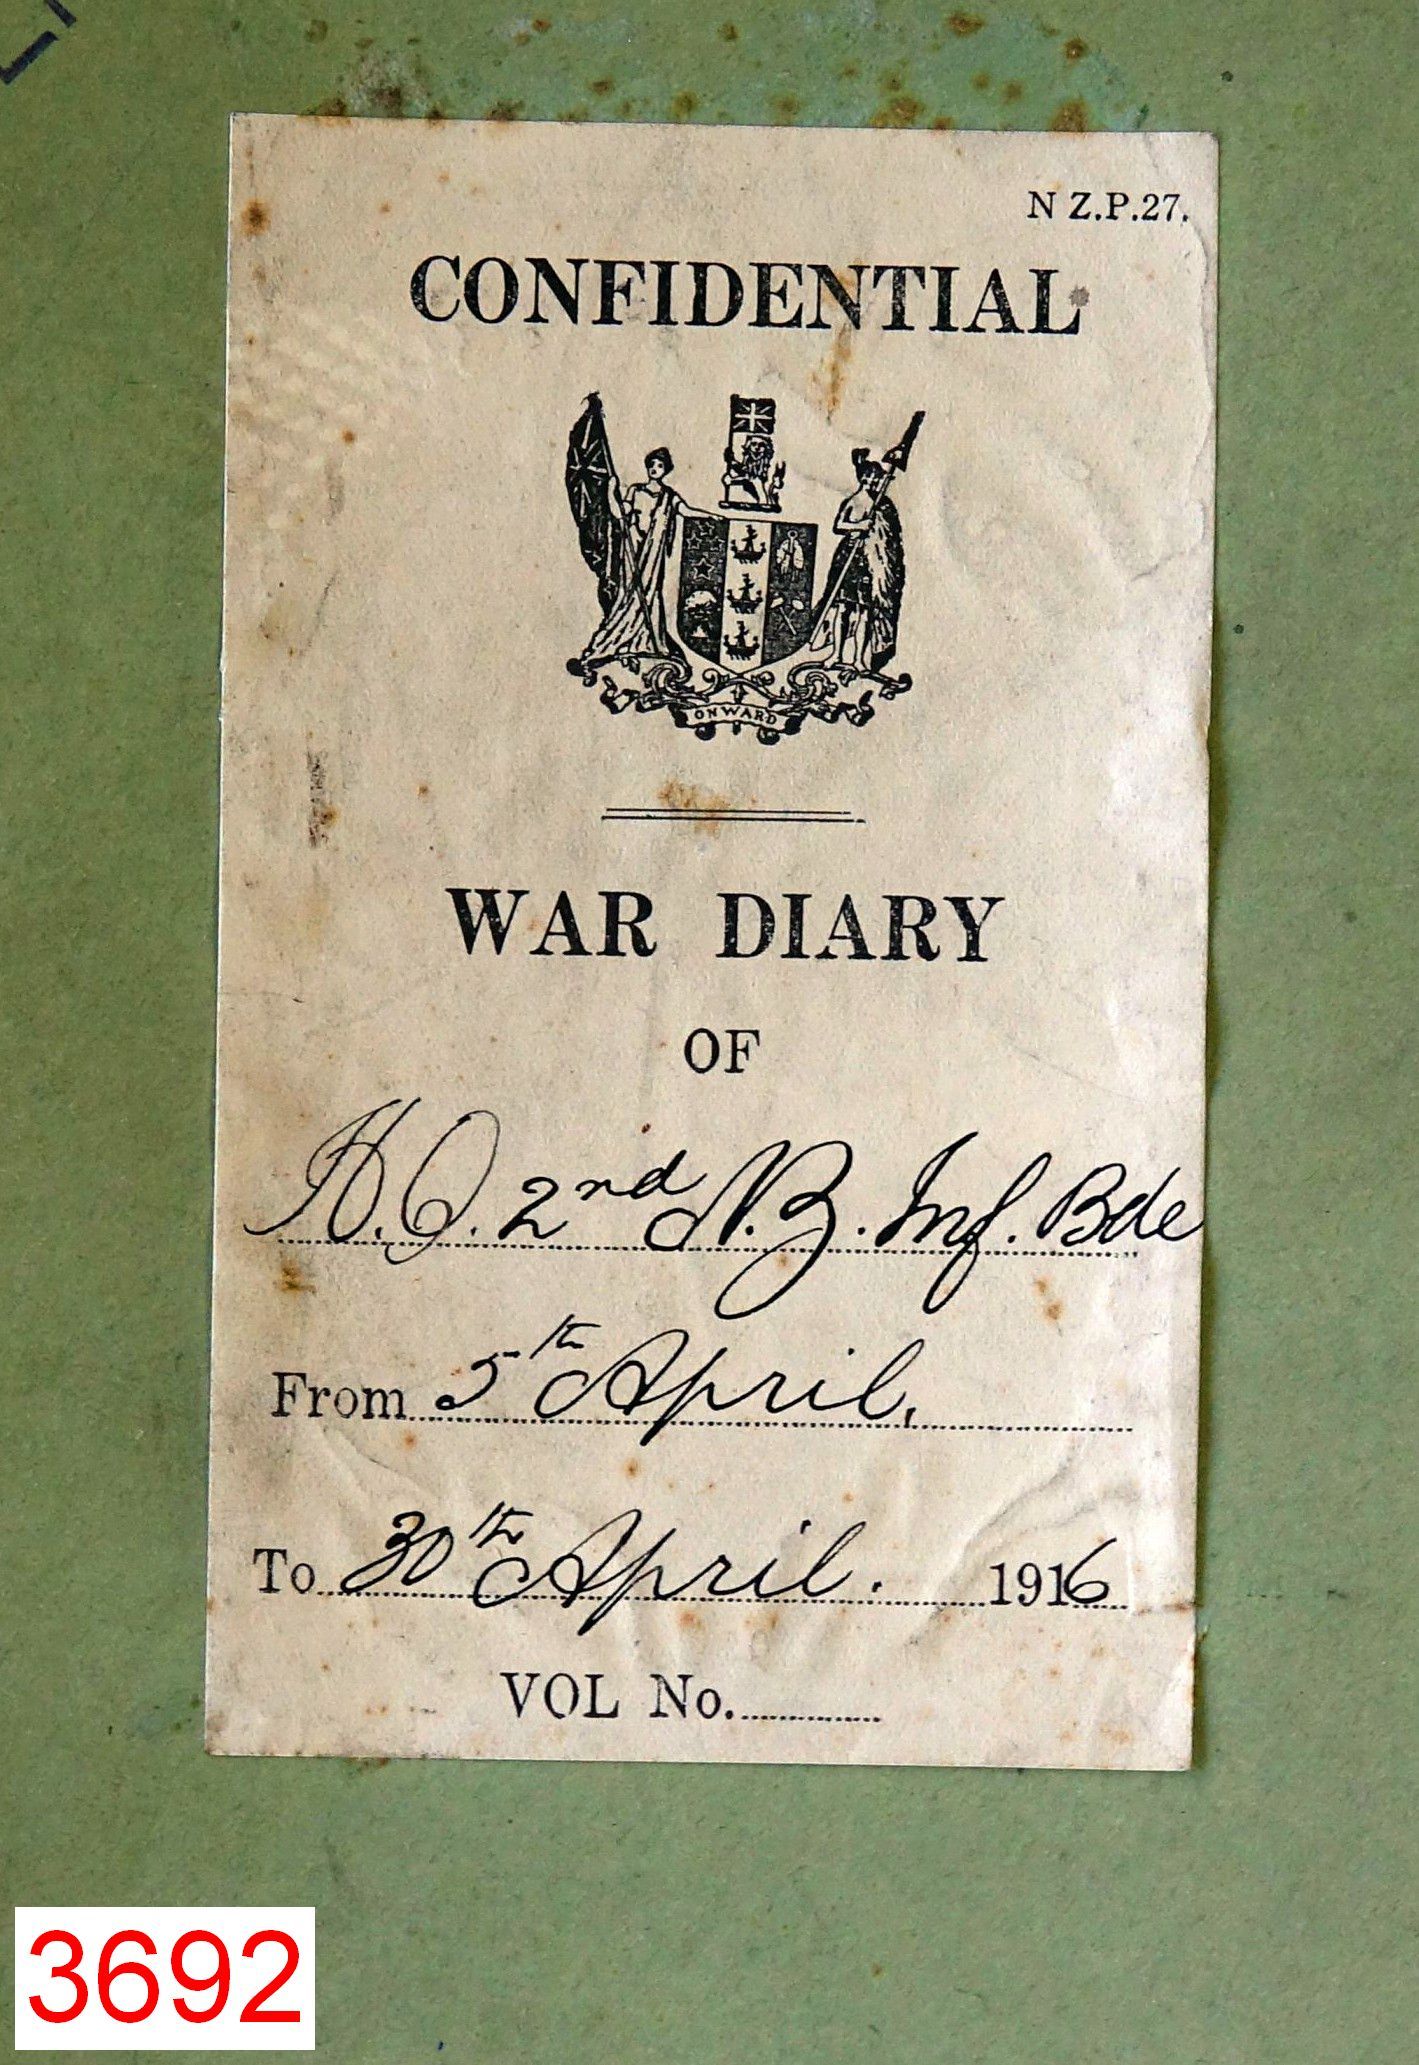 N Z.P.27.
CONFIDENTIAL
ONWARD
WAR DIARY
OF
H.Q. 2nd N.Z. Inf. Bde
From 5th April.
To 30th April. 1916
VOL No.
3692